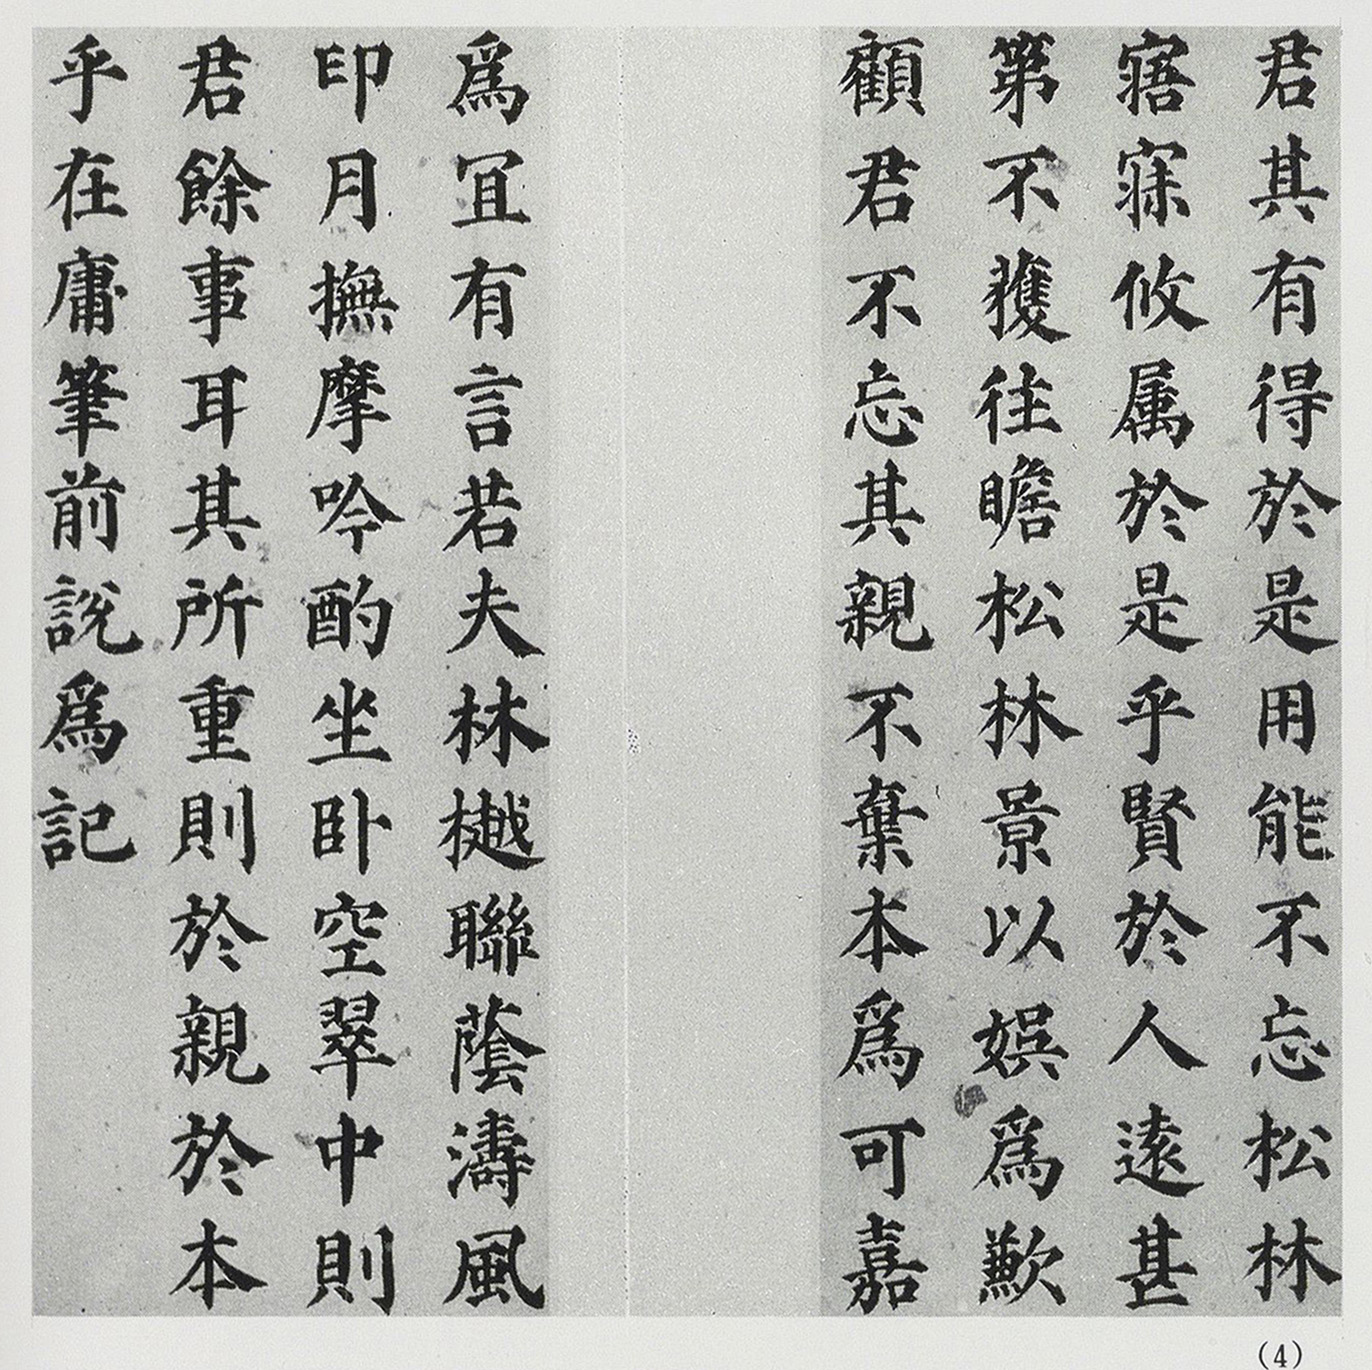 君其有得於是用能不忘松林
寤寐攸属於是乎賢於人遠甚
第不獲往瞻松林景以娯爲歉
顧君不忘其親不棄本爲可嘉
爲冝有言若夫林樾聯蔭濤風
印月撫摩吟酌坐卧空翠中則
君餘事耳其所重則於親於本
乎在庸筆前説爲記
(4)